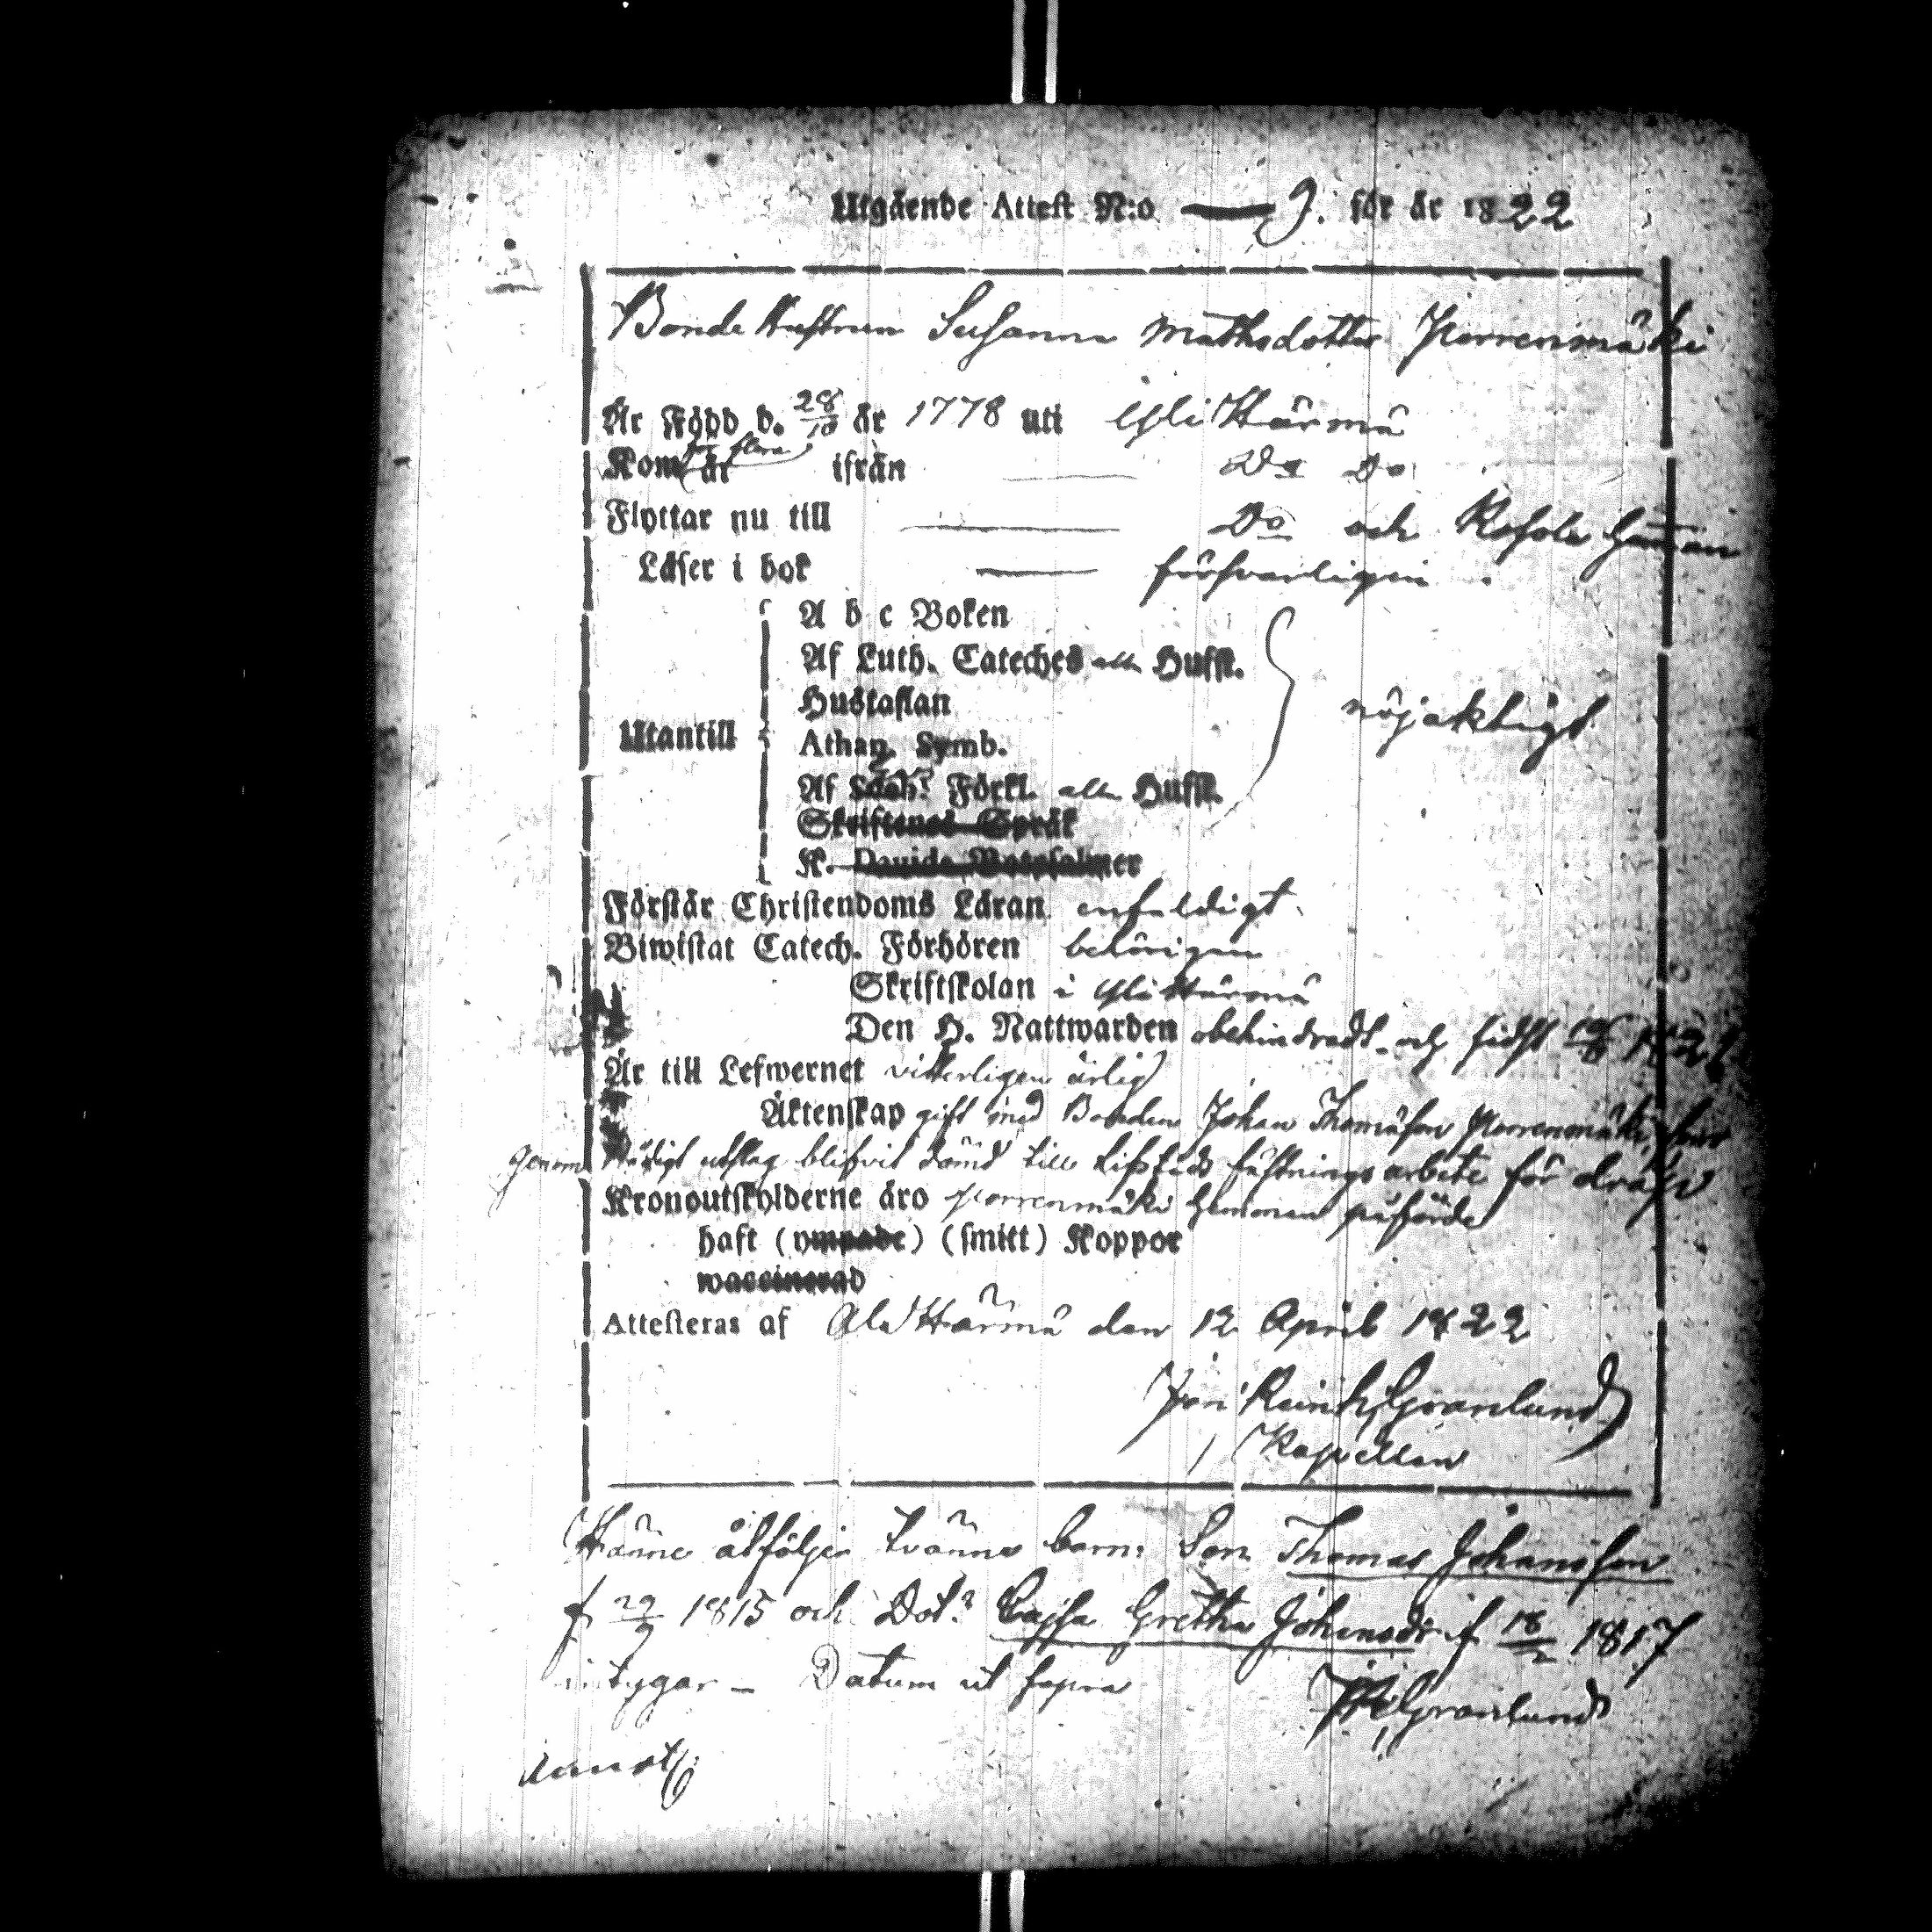 Utgående Attest N:o 9. för år 1822
Bonde Hustrun Susanna Mathsdotter Porrenmäki
Är Född d. 28/10 år 1778 uti Ylihärmä
Kom för flera år ifrån Do Do
Flyttar nu till Do och Rosola Heman
Läser i bok försvarligen.
A b c Boken
Af Luth. Cateches alla Hufst.
Hustaflan
Utantill
Athan. Symb.
Af Förkl. alla Hufst.
Skriftenes Språk
K. Davids Botpsalmer
nöjaktigt
Förstår Christendoms Läran enfaldigt.
Biwistat Catech. Förhören behörigen
Skriftskolan i Ylihärmä
Den H. Nattwarden obehindradt och sidst 1821
Är till Lefwernet vitterligen ärlig
Äktenskap gift med Bonden Johan Thomasson Porrenmäki som
genom Nådigt utslag blifvit dömd till lifstids fästnings arbete för dråp
Kronoutskylderne äro Porrenmäki Hemman påförde
haft (ympade) (smitt) Koppor
waccinerad
Attesteras af Alahärmä den 12 April 1822
Granlund
Kapellan
Hänne åtföljer tvänne barn: Son Thomas Johansson
f 29/9 1815 och Dotr Cajsa Gretha Johansdr f 18/2 1817
intygar – Datum ut supra
Granlund